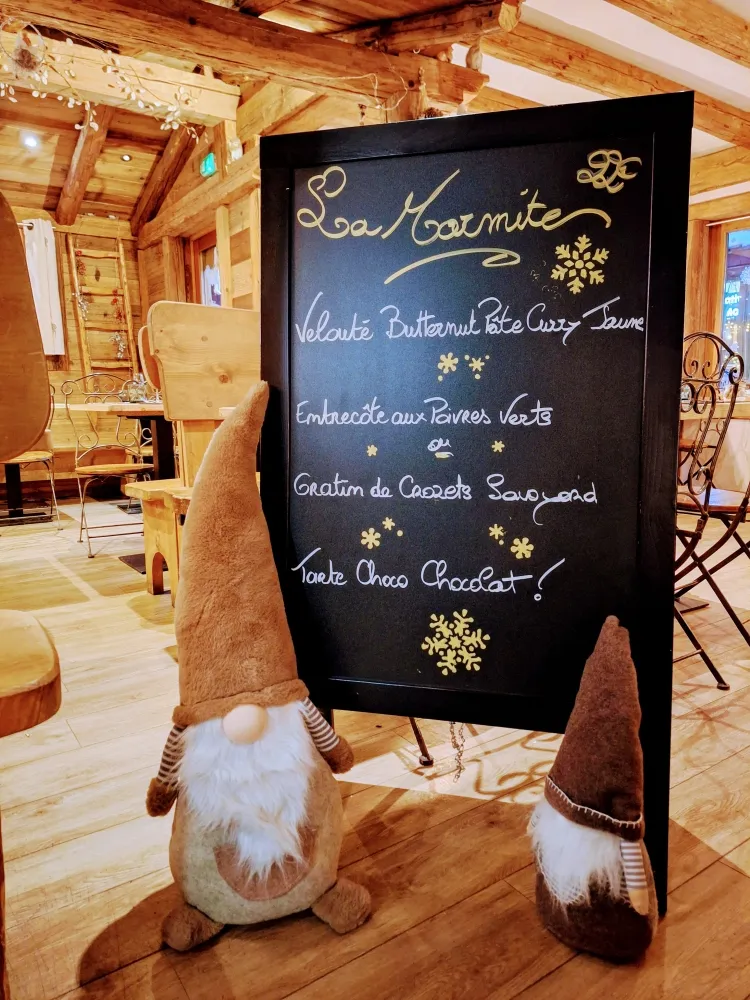 La Marmite
Velouté Butternut Pâte Curry Jaune
Entrecôte aux Poivres Verts
ou
Gratin de Crozets Savoyard
Tarte Choco Chocolat !